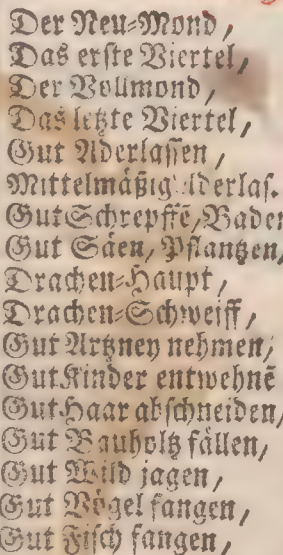 Der Neu-Mond,
Das erste Viertel,
Der Vollmond,
Das letzte Viertel,
Gut Aderlassen,
Mittelmäßig Aderlas.
Gut Schrepffē, Baden
Gut Säen, Pflantzen,
Drachen-Haupt,
Drachen-Schweiff,
Gut Artzney nehmen,
Gut Kinder entwehnē
Gut Haar abschneiden,
Gut Bauholtz fällen,
Gut Wild jagen,
Gut Vögel fangen,
Gut Fisch fangen,